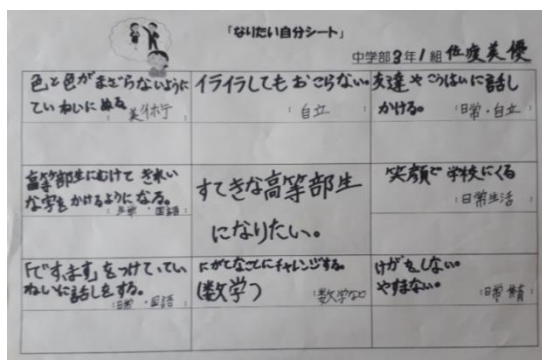 「なりたい自分シート」
中学部3年1組
色と色がまざらないように
ていねいにぬる
イライラしてもおこらない。
:自立
友達やこうはいに話し
かける。
:日常・自立
高等部生にむけて きれい
な字をかけるようになる。
・国語
すてきな高等部生
になりたい。
笑顔で学校にくる
:日常生活
「です、ます」をつけて、てい
ねいに話しをする。
:日常・国語
にがてなことにチャレンジする。
(数学)
:数学など
けがをしない。
やすまない。
:日常